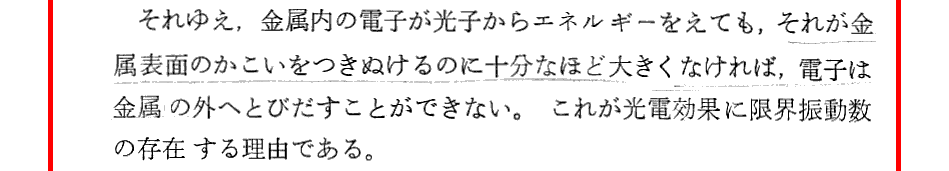 それゆえ，金属内の電子が光子からエネルギーをえても，それが金
属表面のかこいをつきぬけるのに十分なほど大きくなければ，電子は
金属の外へとびだすことができない。 これが光電効果に限界振動数
の存在する理由である。